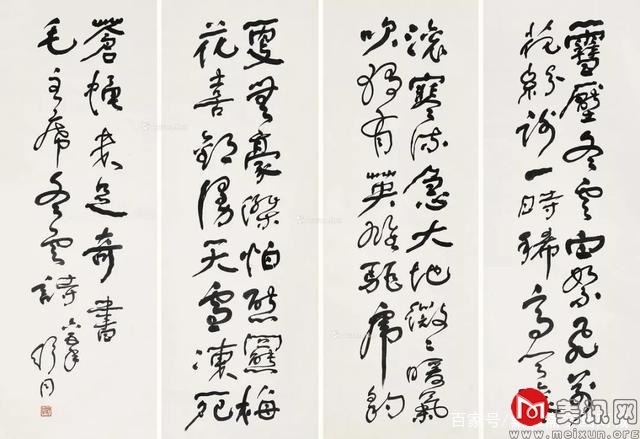 雪壓冬雲白絮飛萬
花紛謝一時稀高天滚
滚寒流急大地微〻暖氣
吹獨有英雄驅虎豹
更無豪傑怕熊羆梅
花喜歡漫天雪凍死
蒼蠅未足奇 書
毛主席冬雲詩 六五年 舒同
百家号/
美讯网
www.meixun.org